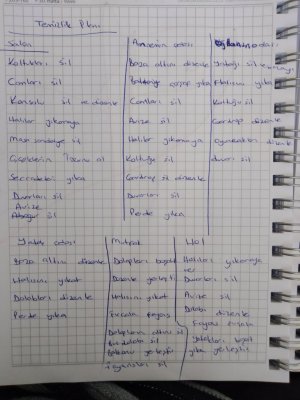 Temizlik Planı
Salon
Koltukları Sil
Camları Sil
Konsolu sil ve düzenle
Halılar yıkamaya
Masa sandalye sil
Çiçeklerin al
Seccadeler yıka
Duvarları sil
Avize
sil
Annemin odası
Baza altını düzenle
çarşaf yıka
Camları sil
Avize sil
Halılar yıkamaya
Koltuğu sil
Gardrop sil düzenle
Duvarları sil
Perde yıka
odası
sil
yıka
Koltuğu sil
Gardrop düzenle
Oyuncakları düzenle
duvar sil
Yatak odası
Baza altını düzenle
Halısını yıkat
Dolabları düzenle
Perde yıka
Mutfak
Dolapları boşalt
Düzenle yerleştir
Halısını yıkat
Fırçala Fayans
Dolapların altını sil
Buzdolabı sil
Balkonu yerleştir
sil
Hol
Halıları yıkamaya
ver
Duvarları sil
Avize sil
Dolabı
düzenle
Fayans fırçala
boşalt
yıka yerleştir